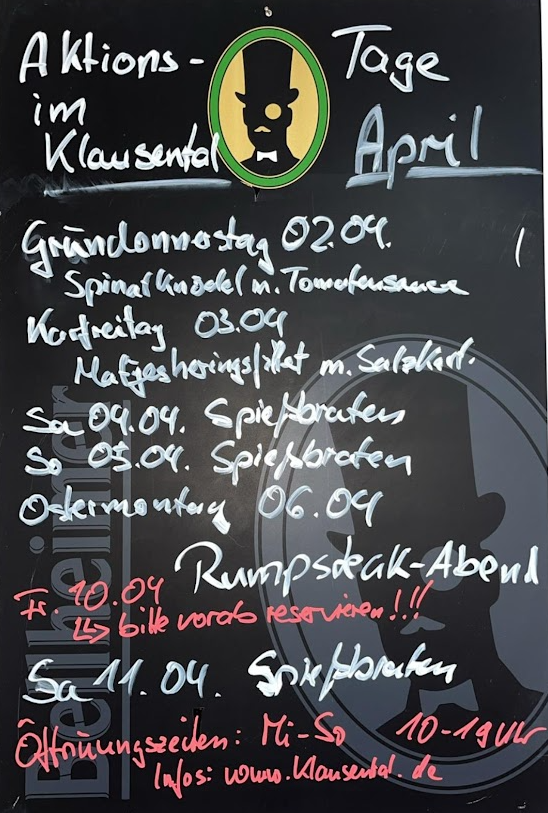 Aktions-Tage
im April
Klausental
Gründonnerstag 02.04.
Spinatknödel m. Tomatensauce
Karfreitag 03.04
Matjesheringsfilet m. Salzkart.
Sa 04.04. Spießbraten
So 05.04. Spießbraten
Ostermontag 06.04
Rumpsteak-Abend
Fr. 10.04
↳> bitte vorab reservieren!!!
Sa 11.04. Spießbraten
Öffnungszeiten: Mi-So 10-19 Uhr
Infos: www.Klausental.de
Bellheimer